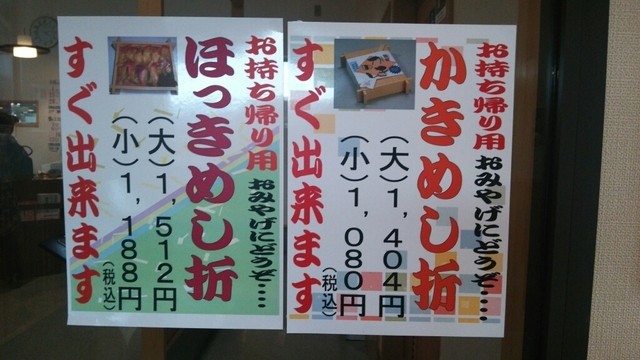 お持ち帰り用 おみやげにどうぞ‥‥
かきめし折
(大)1,404円
(小)1,080円
(税込)
すぐ出来ます
お持ち帰り用 おみやげにどうぞ‥‥
ほっきめし折
(大)1,512円
(小)1,188円
(税込)
すぐ出来ます